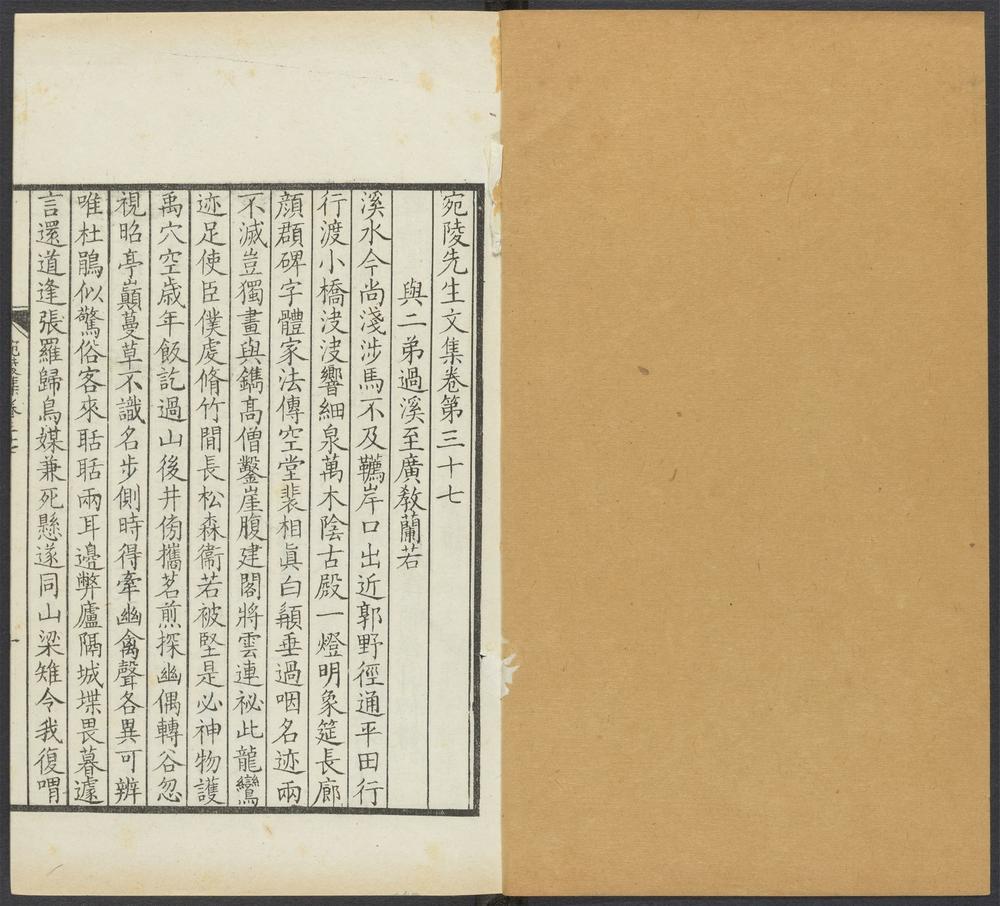 宛陵先生文集卷第三十七
與二弟過溪至廣教蘭若
溪水今尚淺涉馬不及韉岸口出近郭野徑通平田行
行渡小橋決決響細泉萬木陰古殿一燈明象筵長廊
顔頵碑字體家法傳空堂裴相真白顙垂過咽名迹兩
不滅豈獨畫與鐫髙僧鑿崖腹建閣將雲連祕此龍鸞
迹足使臣僕䖍脩竹間長松森衞若被堅是必神物護
禹穴空歳年飯訖過山後井傍攜茗煎探幽偶轉谷忽
視昭亭巔蔓草不識名步側時得牽幽禽聲各異可辨
唯杜鵑似驚俗客來聒聒兩耳邊弊廬隔城堞畏暮遽
言還道逢張羅歸鳥媒兼死懸遂同山梁雉令我復喟